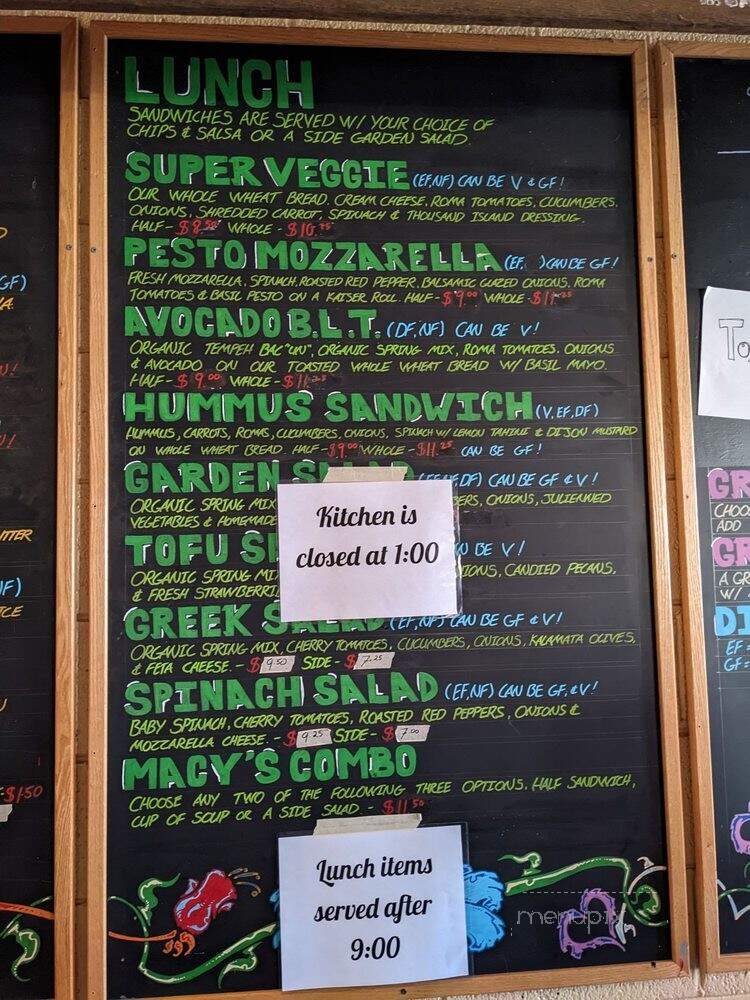 LUNCH
SANDWICHES ARE SERVED W/ YOUR CHOICE OF
CHIPS & SALSA OR A SIDE GARDEN SALAD
SUPER VEGGIE (EF,NF) CAN BE V & GF!
OUR WHOLE WHEAT BREAD, CREAM CHEESE, ROMA TOMATOES, CUCUMBERS,
ONIONS, SHREDDED CARROT, SPINACH & THOUSAND ISLAND DRESSING.
HALF- $8.50 WHOLE - $10.75
PESTO MOZZARELLA (EF, ) CAN BE GF!
FRESH MOZZARELLA, SPINACH, ROASTED RED PEPPER, BALSAMIC GLAZED ONIONS, ROMA
TOMATOES & BASIL PESTO ON A KAISER ROLL. HALF- $9.00 WHOLE - $11.25
AVOCADO B.L.T. (DF,NF) CAN BE V!
ORGANIC TEMPEH BAC"UN", ORGANIC SPRING MIX, ROMA TOMATOES, ONIONS
& AVOCADO ON OUR TOASTED WHOLE WHEAT BREAD W/ BASIL MAYO.
HALF- $9.00 WHOLE- $11.25
HUMMUS SANDWICH (V,EF,DF)
HUMMUS, CARROTS, ROMAS, CUCUMBERS, ONIONS, SPINACH W/ LEMON TAHINI & DIJON MUSTARD
ON WHOLE WHEAT BREAD HALF-$9.00 WHOLE-$11.25 CAN BE GF!
GARDEN SALAD DF) CAN BE GF & V!
ORGANIC SPRING MIX BERS, ONIONS, JULIENNED
VEGETABLES & HOMEMADE
Kitchen is
closed at 1:00
TOFU BE V!
ORGANIC SPRING MIX IONS, CANDIED PECANS,
& FRESH STRAWBERRI
GREEK SALAD (EF,NF) CAN BE GF & V!
ORGANIC SPRING MIX, CHERRY TOMATOES, CUCUMBERS, ONIONS, KALAMATA OLIVES,
& FETA CHEESE. - $9.50 SIDE- $7.25
SPINACH SALAD (EF,NF) CAN BE GF & V!
BABY SPINACH, CHERRY TOMATOES, ROASTED RED PEPPERS, ONIONS &
MOZZARELLA CHEESE. - $9.25 SIDE- $7.00
MACY'S COMBO
CHOOSE ANY TWO OF THE FOLLOWING THREE OPTIONS. HALF SANDWICH,
CUP OF SOUP OR A SIDE SALAD - $11.50
Lunch items
served after
9:00
menupix
GF)
-$1.50
To
GR
CHOO
ADD
GR
A GR
W/
DI
EF =
GF=